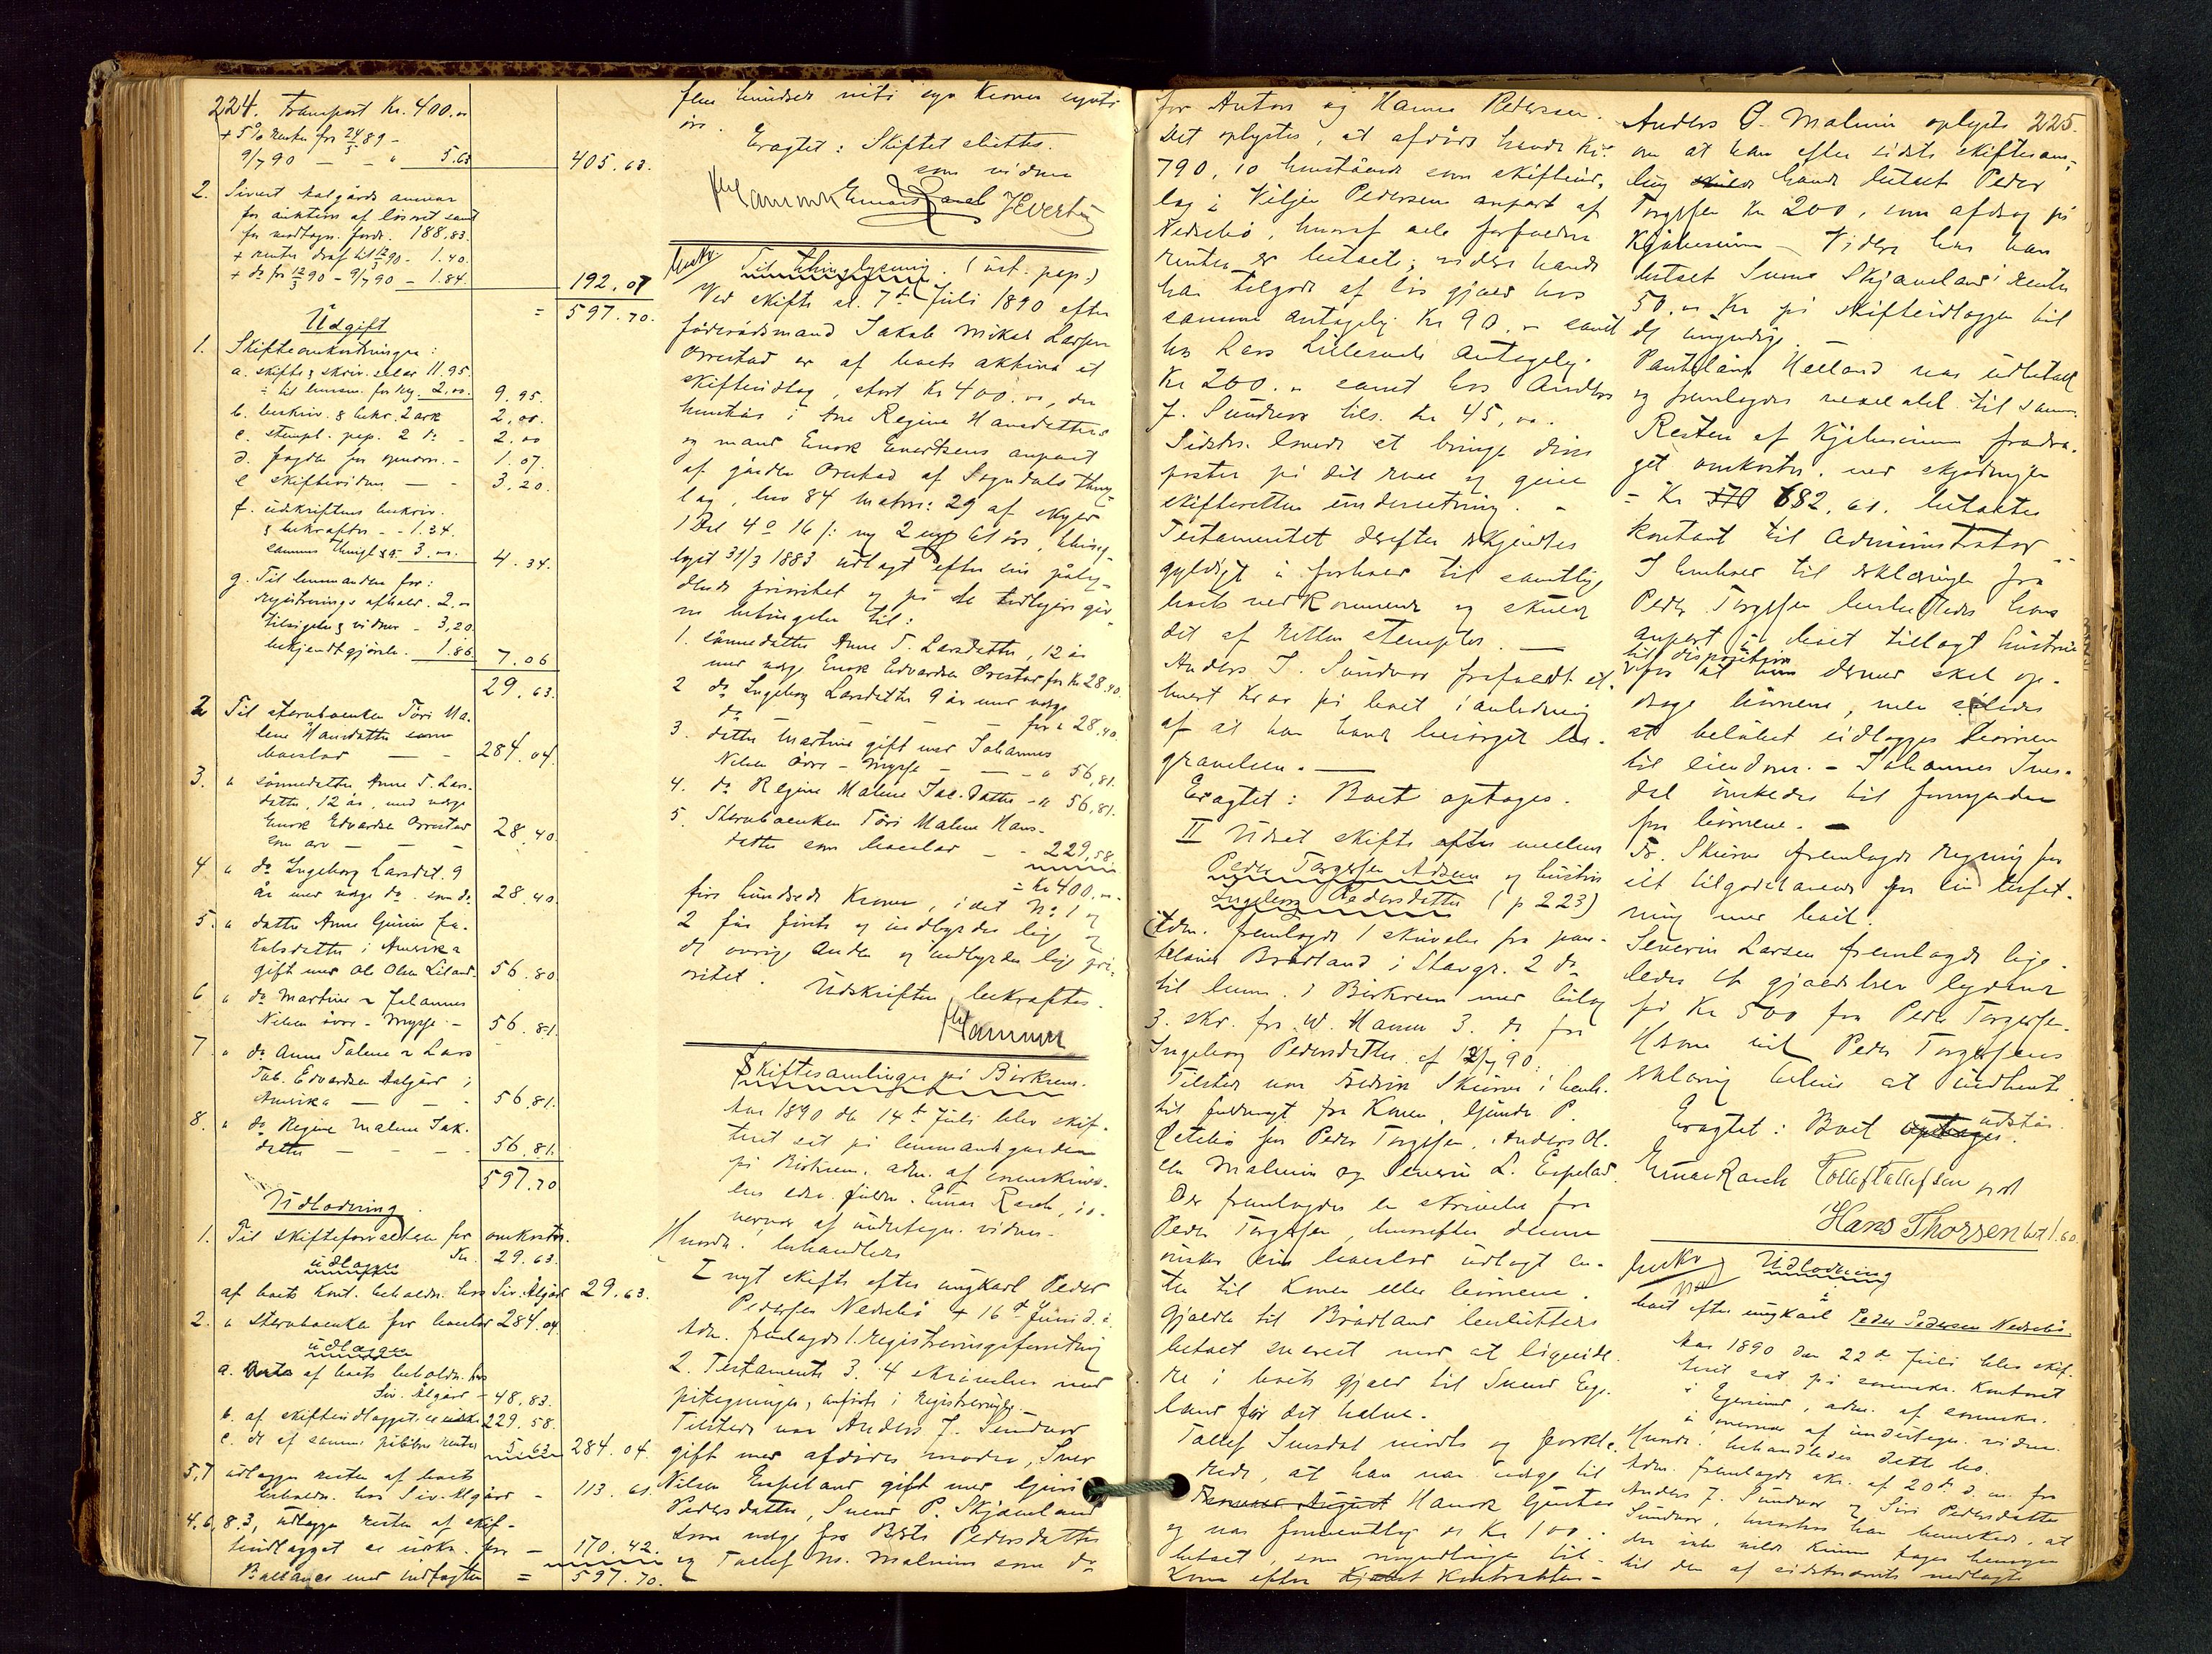 224. Transport Kr. 400.00
+ 5% Renter fra 24/5 89 -
9/7 90 — - " 5.63
405.63.
2. Sivert Aalgårds ansvar
for auktion af løsøret samt
for modtagn. fordr. 188.83.
+ renter deraf til 12/3 90 - 1.40.
+ do fra 12/3 90 - 9/7 90 - 1.84.
192.07
= 597.70.
Udgift
1. Skifteomkostninger:
a. skifte & skriv. salær 11.95.
÷ til lensm. for reg. 2.00. 9.95.
b. beskriv. & bekr. 2 ark 2.00.
c. stempl. pap. 2 do - 2.00
d. fragten for - 1.07.
e skiftevidner — - 3.20.
f. udskriftens beskriv.
& bekræftn. - - 1.34.
sammes thingl. - 3.00. 4.34.
g. Til lensmanden for:
registrerings afhold. 2.00
tilsigelse & vidner - 3,20.
bekjendtgjørelse. 1.86. 7.06
29.63.
2 Til sterboenken Tøri Ma-
lene Hansdatter som
boeslod — - 284.04.
3. " sønnedatter Anne T. Lars-
datter, 12 år, med værge
Enok Edvardsen Orrestad
som arv — — 28.40.
4 " do Ingeborg Larsdat. 9
år med værge do. som do 28.40.
5. " datter Anne Gurine Ja-
kobsdatter i Amerika
gift med Ole Olsen Liland. 56.80
6 " do Martine ~ Johannes
Nilsen øvre-Mysse - 56.81.
7 " do Anne Taline ~ Lars
Tob. Edvardsen Aalgård i
Amerika — - - 56.81.
8. " do Regine Malene Jak.
datter — - - - 56.81.
597.70
Udlodning.
1. Til skifteforvalteren for omkostn.
Kr. 29.63.
udlægges
af boets kont. beholdn. hos Siv. Ålgård 29.63.
2. " Sterboenken for boeslod 284.04
udlægges
a. Resto af boets beholdn. hos
Siv. Ålgård - 48.83.
b. af skifteudlægget er 229.58.
c. do af samme påløbne renter 5.63 284.04.
5,7 udlægges resten af boets
beholdn. hos Siv. Algård - 113.61
4.6,8.3, udlægges resten af skif-
teudlægget for — 170.42.
Ballance med indtægten = 597.70.
fem hundrede niti syv kroner sytti
øre.
Eragtet: Skiftet sluttes.
som vidner
Hammer Einar Rasch J Evertsen
Til thinglysning. (ust. pap.)
Ved skifte af 7de Juli 1890 efter
føderådsmand Jakob Mikal Larsen
Orrestad er af boets aktiva et
skifteudlæg, stort Kr 400.00, der
henstår i Ane Regine Hansdatters
og mand Enok Evertsens anpart
af gården Orrestad af Sogndals thing-
lag, lno 84 matr: 29 af skyld
1 Dal. 4 o 16 s: ny 2 61 øre, thing-
lyst 31/3 1883 udlagt efter sin påly-
dende prioritet og på de tidligere giv-
ne betingelser til:
1. sønnedatter Anne T. Larsdatter, 12 år
med værge Enok Edvardsen Orrestad for Kr 28.40.
2 do Ingeborg Larsdatter 9 år med værge
do — — — for " 28.40.
3. datter Martine gift med Johannes
Nilsen Øvre-Mysse - — - " 56.81.
4. do Regine Malene Jac. datter - " 56.81.
5. Sterboenken Tøri Malene Hans-
datter som boeslod - - 229.58.
= Kr 400.00.
fire hundrede Kroner, idet No 1 og
2 får første og indbyrdes lige og
de øvrige anden og indbyrdes lige pri-
oritet. Udskriften bekræftes.
Hammer
Skiftesamlinger på Birkrem.
Aar 1890 den 14de Juli blev skif-
teret sat på lensmandsgården
på Birkrem, adm. af sorenskrive-
rens edsv. fuldm. Einar Rasch, i o-
vervær af undertegn. vidner.
Hvorda behandledes
I nyt skifte efter ungkarl Peder
Pedersen Nedrebø + 16de Juni d.å.
Adm. fremlagde 1. registreringsforretning
2. Testamente 3. 4 skrivelser med
påtegninger, anførte i registreringen -
Tilstede var Anders J. Sundvor
gift med afdødes moder, Iver
Nilsen Espeland gift med Gjuri
Pedersdatter, Svend P. Skjæveland
som værge for Berte Pedersdatter
og Tollef M. Malmim som do
for Anton og Hanna Pedersen.
Det oplystes, at afdøde havde Kr.
790,10 henstående som skifteud-
læg i Viljer Pedersens anpart af
Nedrebø, hvoraf alle forfaldne
renter er betalt; videre havde
han tilgode af løs gjæld hos
samme antagelig Kr 90.- samt
hos Lars Lillesund antagelig
Kr 200.00 samt hos Anders
J. Sundvor tils. Kr 45,00.
Sidstn. lovede at bringe disse
poster på det rene og give
skifteretten underretning. -
Testamentet derefter erkjendtes
gyldigt i forhold til samtlige
boets vedkommende og skulde
det af retten stemples. —
Anders J. Sundvor frafaldt et-
hvert Krav på boet i anledning
af at han havde besørget be-
gravelsen. —
Eragtet: Boet optages.
II Udsat skifte efter mellem
Peder Torgersen Adsem og hustru
Ingeborg Pedersdatter (p 223)
Adm. fremlagde 1 skrivelse fra pan-
telånet Brådland i Stavgr. 2 do
til lensm. i Birkrem med bilag
3. skr. fra W. Hamm 3. do fra
Ingeborg Pedersdatter af 12/7 90.
Tilstede var Fredrik Skurve i henh.
til fuldmagt fra Konen, Gunder P.
for Peder Torgersen, Anders Ol.
sen Malmin og Severin L. Espelad.
Der fremlagdes en skrivelse fra
Peder Torgersen, hvorefter denne
ønsker sin boeslod udlagt en-
ten til Konen eller børnene.
Gjælden til Brådland besluttedes
betalt snarest med at likvide-
re i boets gjæld til Svend Ege-
land for det halve.
Tollef Ivesdal mødte og forkla-
rede, at han var værge til
Hansk Gustav
og var formentlig de Kr 100.-
betalt, som myndlinge til-
kom efter Kontrakten -
Anders O. Malmin oplyste 225.
om at han efter sidste skiftesam-
ling havde betalt Peder
Torgersen Kr 200, som afdrag på
Kjøbesum - Videre har han
betalt Svend Skjævelan i renter
50.00 Kr på skifteudlægget til
de umyndige.
Pantelånet Helland var udbetalt
og fremlagdes til samm.
Resten af Kjøbesummen fradra-
get omkostn. ved skjødningen
= Kr 682.61. betaltes
kontant til Administrator -
I henhold til erklæringen fra
Peder Torgersen besluttedes hans
anpart i boet tillagt hustrus
til disposition
for at hun dermed skal op-
drage børnene, men således
at beløbet udlægges børnene
til eiendom. - Johannes Ives-
dal ønskedes til formynder
for børnene. -
Fr. Skurve fremlagde regning for
sit tilgodehavende for sin befat-
ning med boet.
Severin Larsen fremlagde lige-
ledes et gjældsbrev lydende
på Kr 500 fra Peder Torgersen.
Hvorom vil Peder Torgersens
erklæring blive at indhente.
Eragtet: Boet udstår.
Einar Rasch Tollef Tollefsen
Hans Thorsen bet 1.60.
Udlodning
i
boet efter ungkarl Peder Pedersen Nedrebø
Aar 1890 den 22de Juli blev skif-
teret sat på sorenskr. Kontoret
i Egersund, adm. af sorenskr.
i overvær af undertegn. vidner.
Hvorda. behandledes dette bo.
Adm. fremlagde skr. af 20de d.m. fra
Anders J. Sundvor & Siri Pedersdatter
Sundvor, hvorhos han bemærkede, at
der ikke vilde kunne tages hensyn
til den af sidstnævnte nedlagte